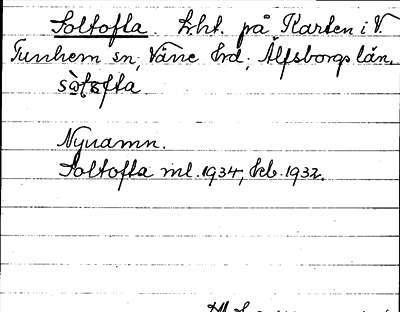 Soltofta. Lht. på Karten i V.
Tunhem sn, Väne hd, Älfsborgs län.
sòltòfta
Nynamn.
Soltofta ml. 1934, Eeb. 1932.